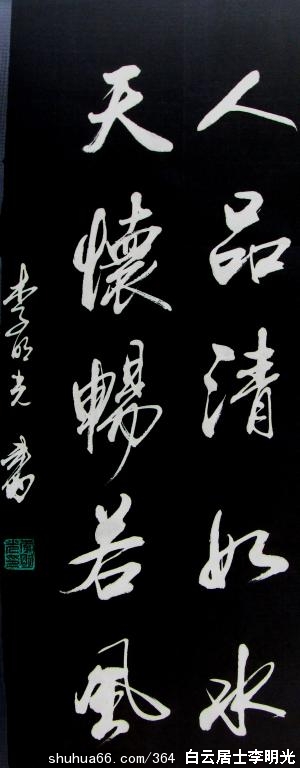 人品清如水
天懷暢若風
李明光書
shuhua66.com/364 白云居士李明光